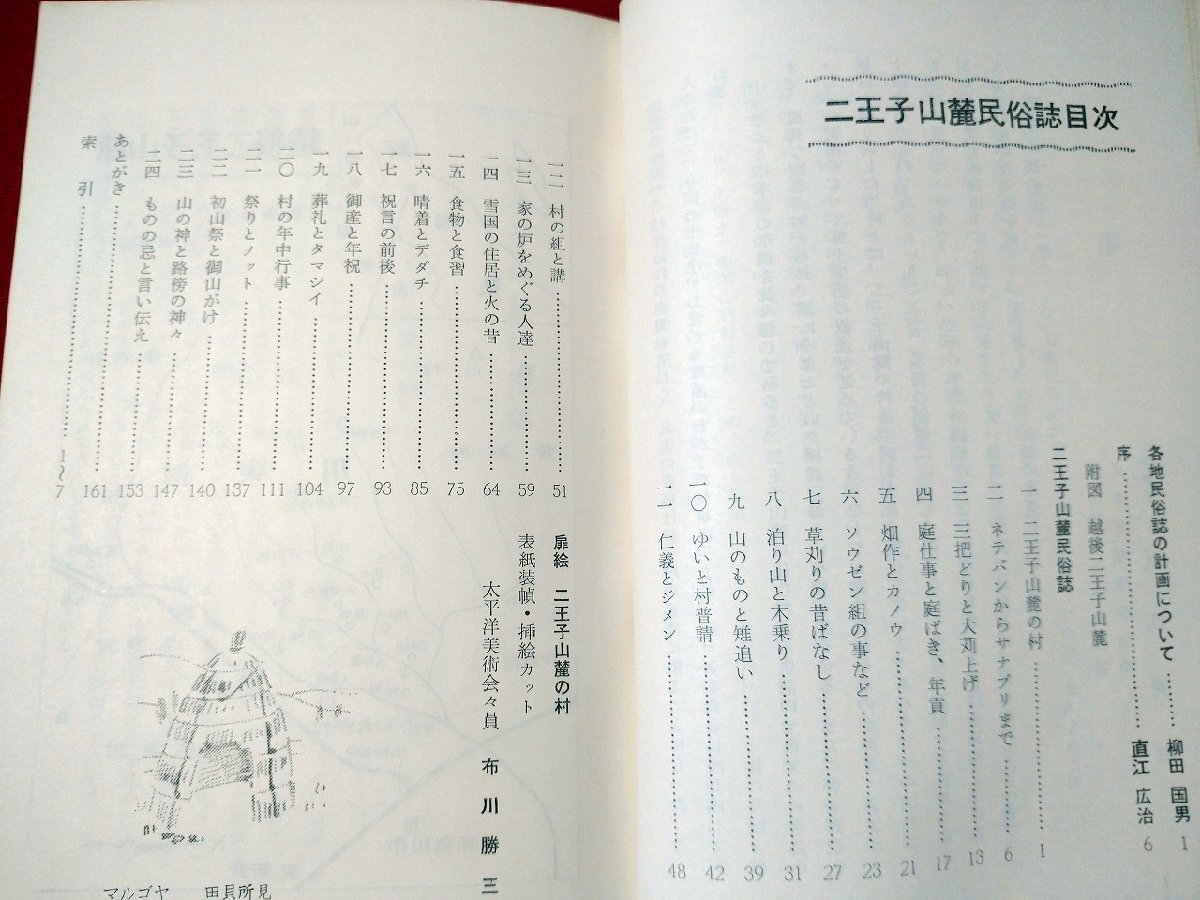 二王子山麓民俗誌目次
各地民俗誌の計画について………柳田国男 1
序………直江広治 6
附図 越後二王子山麓
二王子山麓民俗誌
一 二王子山麓の村………1
二 ネテバンからサナブリまで………6
三 三把どりと大苅上げ………13
四 庭仕事と庭ばき、年貢………17
五 畑作とカノウ………21
六 ソウゼン組の事など………23
七 草刈りの昔ばなし………27
八 泊り山と木乗り………31
九 山のものと雉追い………39
一〇 ゆいと村普請………42
一一 仁義とジメン………48
一二 村の組と講………51
一三 家の炉をめぐる人達………59
一四 雪国の住居と火の昔………64
一五 食物と食習………75
一六 晴着とデダチ………85
一七 祝言の前後………93
一八 御産と年祝………97
一九 葬礼とタマシイ………104
二〇 村の年中行事………111
二一 祭りとノット………137
二二 初山祭と御山がけ………140
二三 山の神と路傍の神々………147
二四 ものの忌と言い伝え………153
あとがき………161
索引………1〜7
扉絵 二王子山麓の村
表紙装幀・挿絵カット
太平洋美術会々員 布川勝三
マルゴヤ 田貝所見